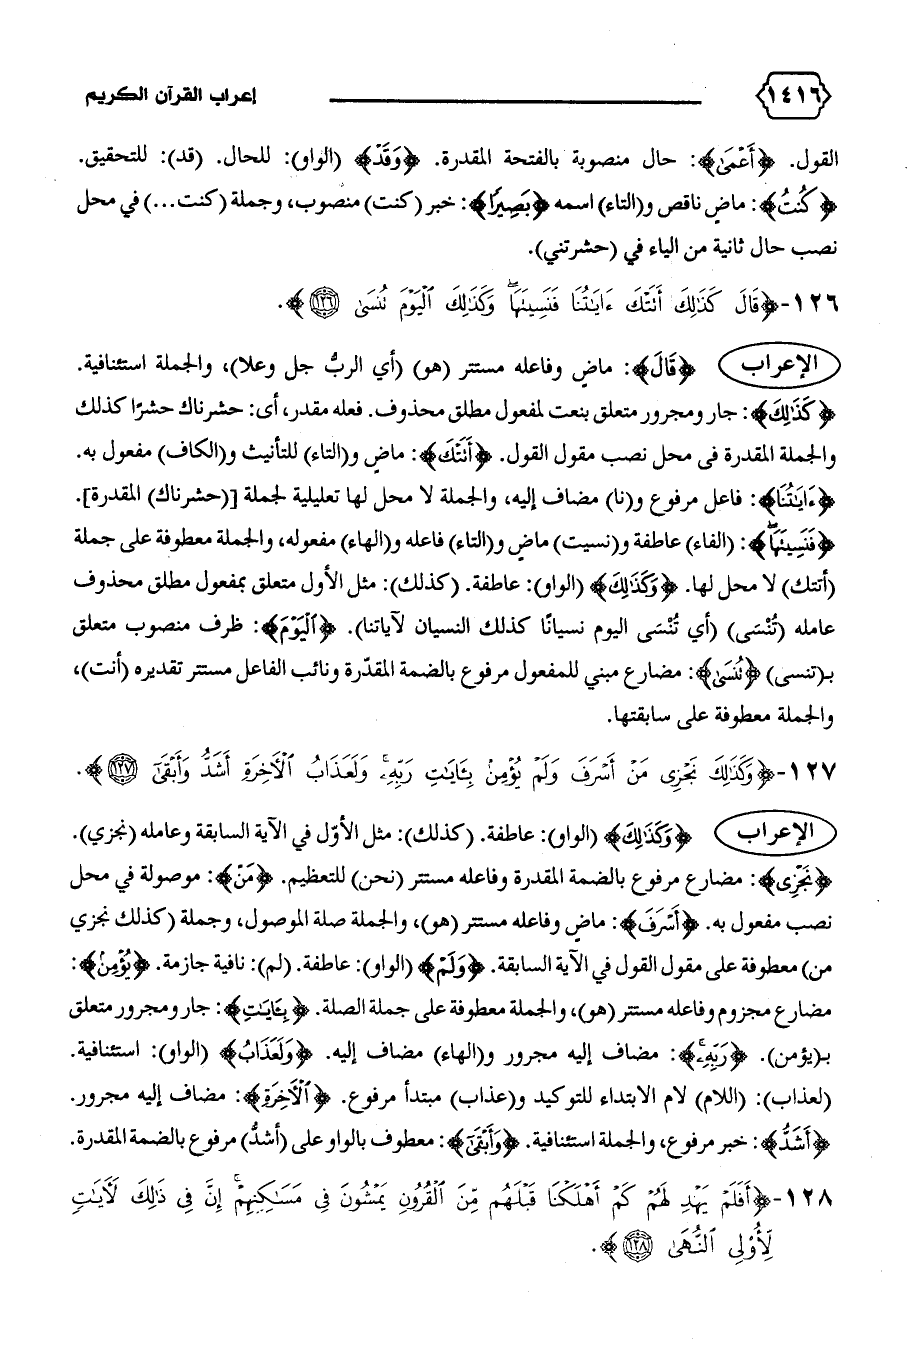 ١٤١٦ إعراب القرآن الكريم
القول. ﴿أَعْمَىٰ﴾: حال منصوبة بالفتحة المقدرة. ﴿وَقَدْ﴾ (الواو): للحال. (قد): للتحقيق.
﴿كُنتُ﴾: ماضٍ ناقص و(التاء) اسمه ﴿بَصِيرًا﴾: خبر (كنت) منصوب، وجملة (كنت...) في محل
نصب حال ثانية من الياء في (حشرتني).
١٢٦-﴿قَالَ كَذَٰلِكَ أَتَتْكَ ءَايَـٰتُنَا فَنَسِيتَهَا ۖ وَكَذَٰلِكَ ٱلْيَوْمَ تُنسَىٰ ١٢٦﴾.
الإعراب ﴿قَالَ﴾: ماضٍ وفاعله مستتر (هو) (أي الربُّ جل وعلا)، والجملة استئنافية.
﴿كَذَٰلِكَ﴾: جار ومجرور متعلق بنعت لمفعول مطلق محذوف. فعله مقدر، أى: حشرناك حشرًا كذلك
والجملة المقدرة فى محل نصب مقول القول. ﴿أَتَتْكَ﴾: ماضٍ و(التاء) للتأنيث و(الكاف) مفعول به.
﴿ءَايَـٰتُنَا﴾: فاعل مرفوع و(نا) مضاف إليه، والجملة لا محل لها تعليلية لجملة [(حشرناك) المقدرة].
﴿فَنَسِيتَهَا ۖ﴾: (الفاء) عاطفة و(نسيت) ماضٍ و(التاء) فاعله و(الهاء) مفعوله، والجملة معطوفة على جملة
(أتتك) لا محل لها. ﴿وَكَذَٰلِكَ﴾ (الواو): عاطفة. (كذلك): مثل الأول متعلق بمفعول مطلق محذوف
عامله (تُنْسَى) (أي تُنْسَى اليوم نسيانًا كذلك النسيان لآياتنا). ﴿ٱلْيَوْمَ﴾: ظرف منصوب متعلق
بـ(تنسى) ﴿تُنسَىٰ﴾: مضارع مبني للمفعول مرفوع بالضمة المقدّرة ونائب الفاعل مستتر تقديره (أنت)،
والجملة معطوفة على سابقتها.
١٢٧-﴿وَكَذَٰلِكَ نَجْزِى مَنْ أَسْرَفَ وَلَمْ يُؤْمِنۢ بِـَٔايَـٰتِ رَبِّهِۦ ۚ وَلَعَذَابُ ٱلْـَٔاخِرَةِ أَشَدُّ وَأَبْقَىٰٓ ١٢٧﴾.
الإعراب ﴿وَكَذَٰلِكَ﴾ (الواو): عاطفة. (كذلك): مثل الأوّل في الآية السابقة وعامله (نجزي).
﴿نَجْزِى﴾: مضارع مرفوع بالضمة المقدرة وفاعله مستتر (نحن) للتعظيم. ﴿مَنْ﴾: موصولة في محل
نصب مفعول به. ﴿أَسْرَفَ﴾: ماضٍ وفاعله مستتر (هو)، والجملة صلة الموصول، وجملة (كذلك نجزي
من) معطوفة على مقول القول في الآية السابقة. ﴿وَلَمْ﴾ (الواو): عاطفة. (لم): نافية جازمة. ﴿يُؤْمِنۢ﴾:
مضارع مجزوم وفاعله مستتر (هو)، والجملة معطوفة على جملة الصلة. ﴿بِـَٔايَـٰتِ﴾: جار ومجرور متعلق
بـ(يؤمن). ﴿رَبِّهِۦ ۚ﴾: مضاف إليه مجرور و(الهاء) مضاف إليه. ﴿وَلَعَذَابُ﴾ (الواو): استئنافية.
(لعذاب): (اللام) لام الابتداء للتوكيد و(عذاب) مبتدأ مرفوع. ﴿ٱلْـَٔاخِرَةِ﴾: مضاف إليه مجرور.
﴿أَشَدُّ﴾: خبر مرفوع، والجملة استئنافية. ﴿وَأَبْقَىٰٓ﴾: معطوف بالواو على (أشدُّ) مرفوع بالضمة المقدرة.
١٢٨-﴿أَفَلَمْ يَهْدِ لَهُمْ كَمْ أَهْلَكْنَا قَبْلَهُم مِّنَ ٱلْقُرُونِ يَمْشُونَ فِى مَسَـٰكِنِهِمْ ۗ إِنَّ فِى ذَٰلِكَ لَـَٔايَـٰتٍ
لِّأُو۟لِى ٱلنُّهَىٰ ١٢٨﴾.